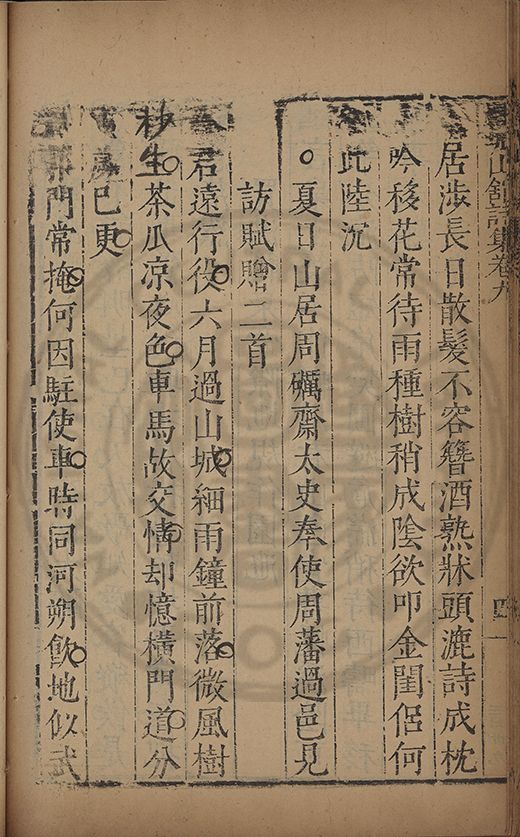 山館詩集卷九
四
居涉長日散髮不容簪酒熟牀頭漉詩成枕
吟移花常待雨種樹稍成陰欲叩金閨侶何
此陸沉
○夏日山居周礪齋太史奉使周藩過邑見
訪賦贈二首
君遠行役六月過山城細雨鐘前落微風樹
杪生茶瓜凉夜色車馬故交情却憶橫門道分
已更
門常掩何因駐使車時同河朔飲地似武